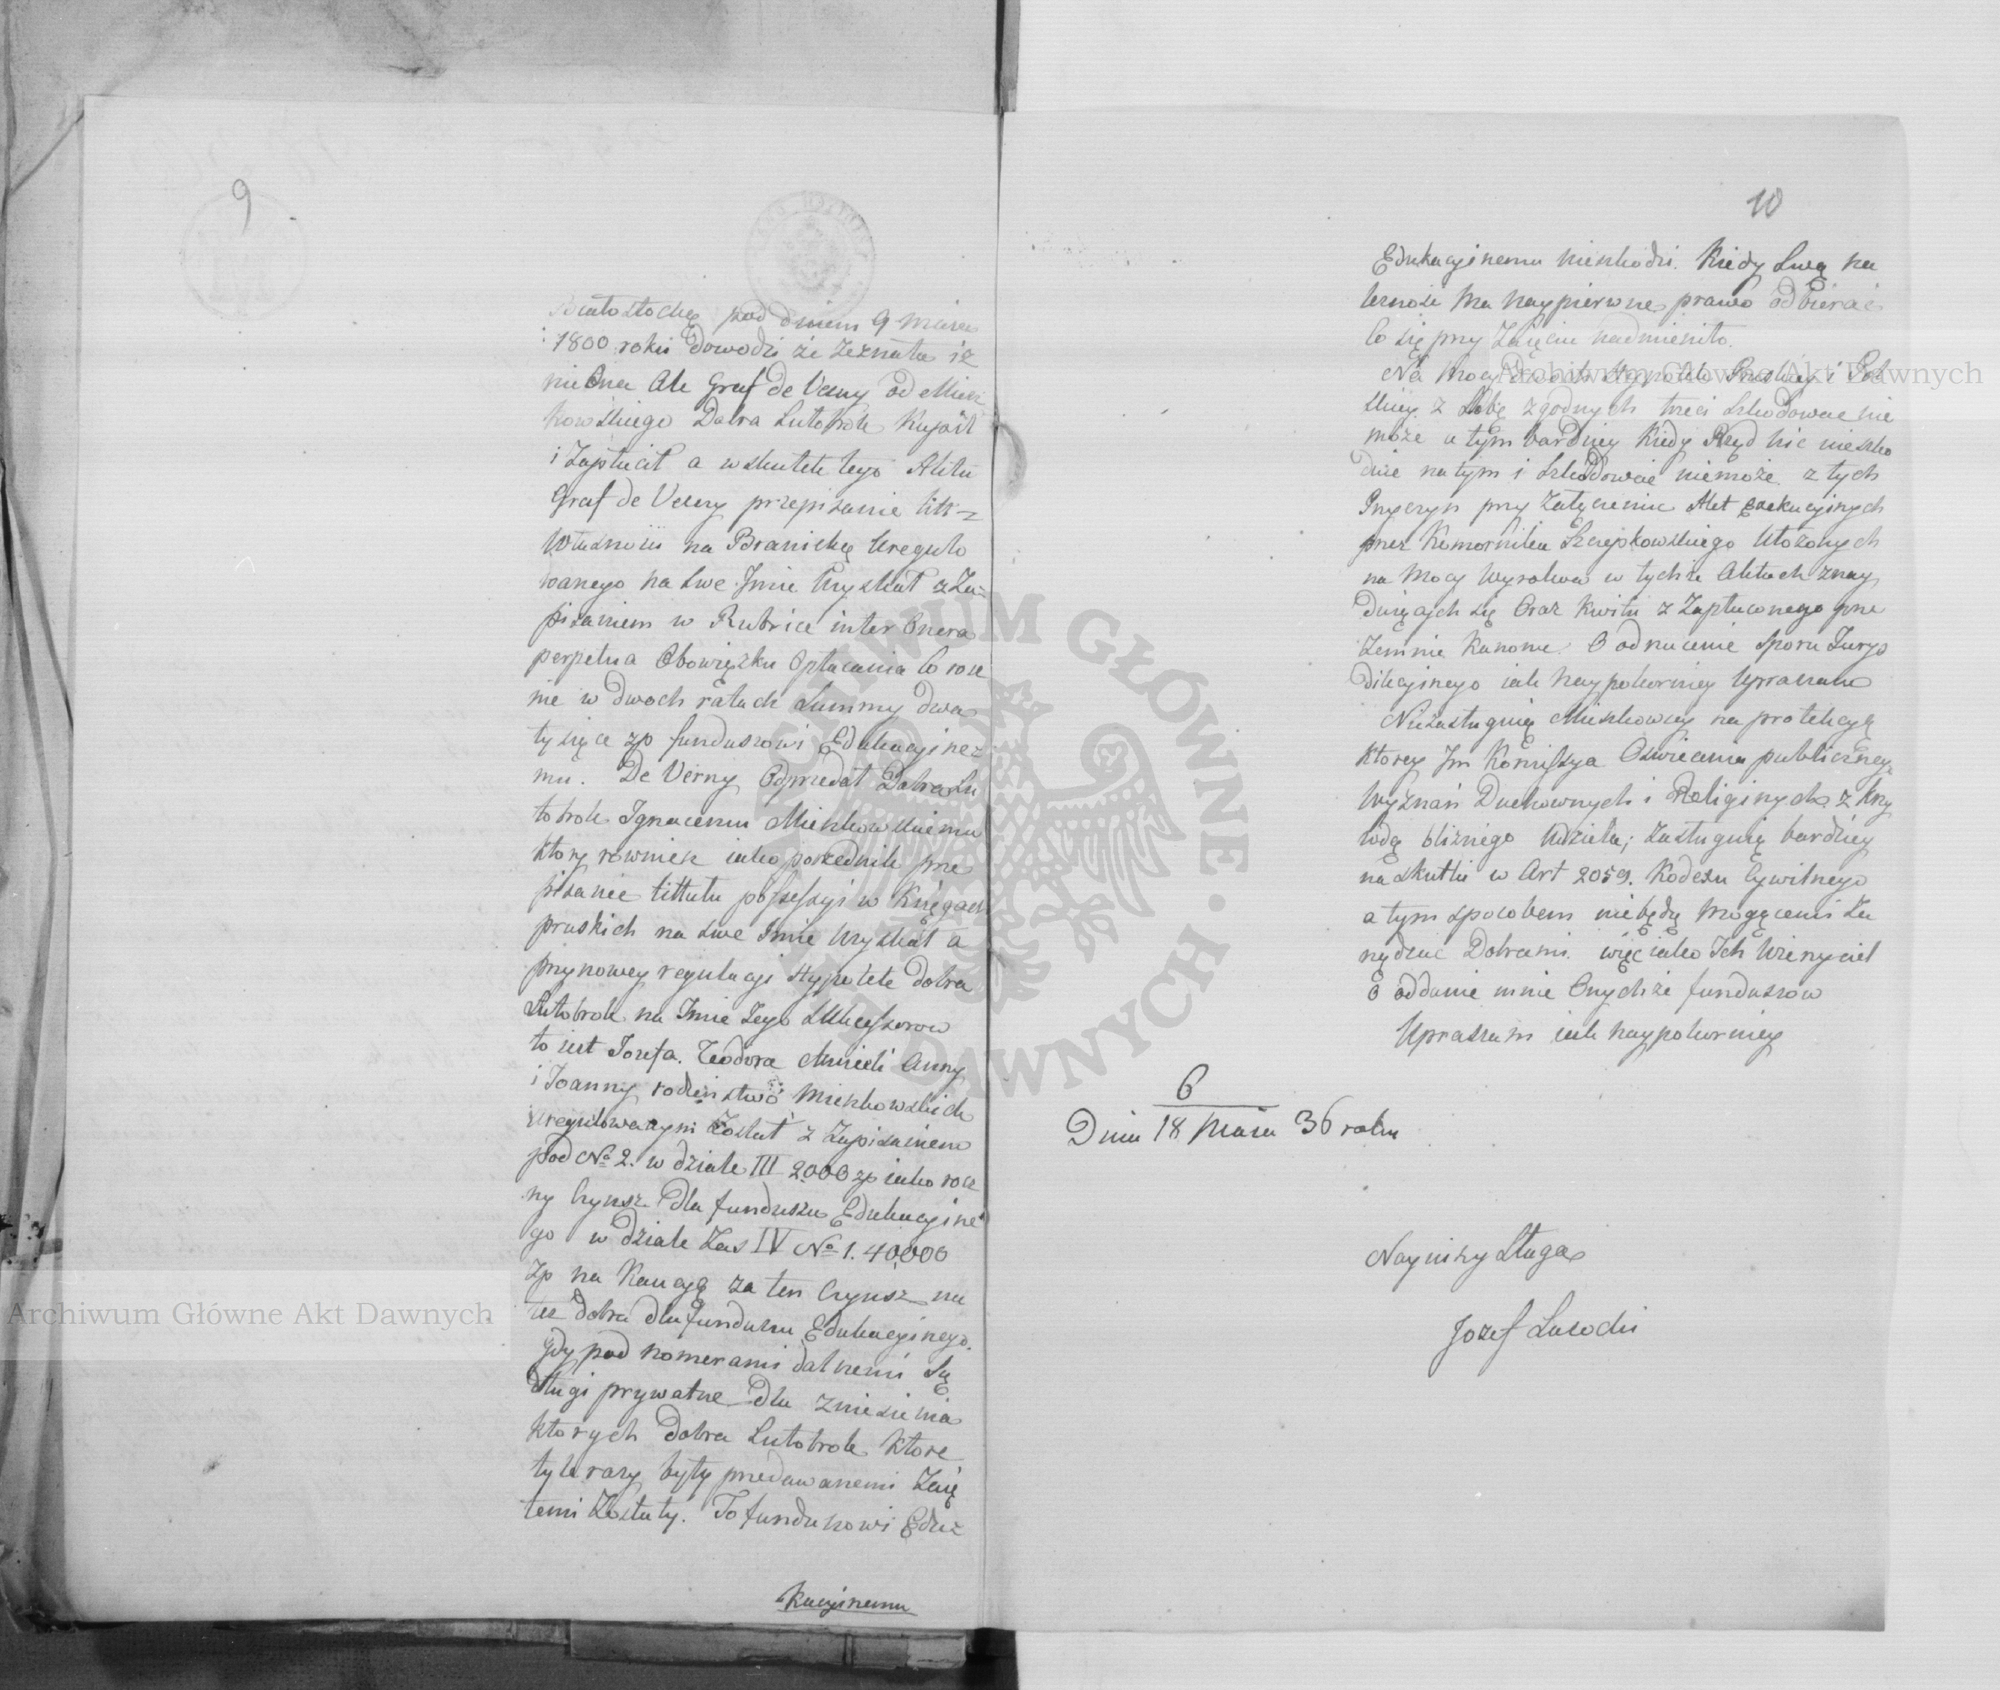 9
Białostockę pod dniem 9 Marca
1800 roku dowodzi że zeznała iż
nie Ona Ale Graf de Verny od Mierz
kowskiego Dobra Lutobrok Kupił
i Zapłacił a wskutek tego Aktu
Graf de Verny przepisanie titt-
własności na Branickę Uregulo
wanego na swe Imie Uzyskał z Za-
pisaniem w Rubrice inter Onera
perpetua Obowiązku Opłacania Corocz
nie w dwoch ratach Summy dwa
tysiące zp funduszowi Edukacyine-
mu. De Verny Odprzedał Dobra Lu
tobrok Ignacemu Mierzkowskiemu
ktory rownież iako poprzednik prze
pisanie tittułu possessyi w Księgach
pruskich na swe Imie Uzyskał a
przy nowey regulacyi Hypoteki dobra
Lutobrok na Imie Iego Sukcessorow
to iest Jozefa. Teodora Anny
i Joanny rodzeństwo Mierzkowskich
uregulowanymi Został z Zapisaniem
pod No 2. w dziale III 2000 zp iako rocz
ny Czynsz Dla funduszu Edukacyine
go w dziale Zas IV No 1. 40,000
zp na Kaucyę za ten Czynsz na
tez dobra dla funduszu Edukacyinego.
gdy pod nomerami dalszemi Są
długi prywatne Dla zniesienia
ktorych Dobra Lutobrok ktore
tyle razy były przedawanemi Zaię
temi Zostały. To funduszowi Edu-
kacyinemu
10
Edukacyinemu nieszkodzi. Kiedy Swą na
leznosc Ma naypierwne prawo odbierać
Co się przy Zaięciu nadmieniło.
Na Mocy dwoch Hypotek Pruskiey i Pol
skiey z Sobą zgodnych trzeci Szkodować nie
może a tym bardziey Kiedy Rząd nic nieszko
duie na tym i Szkodować niemoże z tych
Przyczyn przy Załączeniu Akt exekucyinych
przez Komornika Szczepkowskiego Ułożonych
na Mocy Wyrokow w tychże Aktach znay
duiących się Oraz Kwitu z Zapłaconego prze
zemnie Kanonu. O odrzucenie Sporu Jurys
dikcyinego iak Naypokorniey Upraszam
Niezasługuią Mierzkowscy na protekcyą
ktorey Im Kommissya Oswiecenia publicznego
Wyznań Duchownych i Religinych z krzy
wdą bliźniego Udziela; Zasługuią bardziey
na skutki w Art 2059. Kodexu Cywilnego
a tym sposobem nie będą Mogącemi Za
rządzać Dobrami. więc iako Ich Wierzyciel
o oddanie mnie Onychże funduszow
Upraszam iak naypokorniey
6
Dnia 18 Maia 36 roku
Nayniższy Sługa
Jozef Lasocki